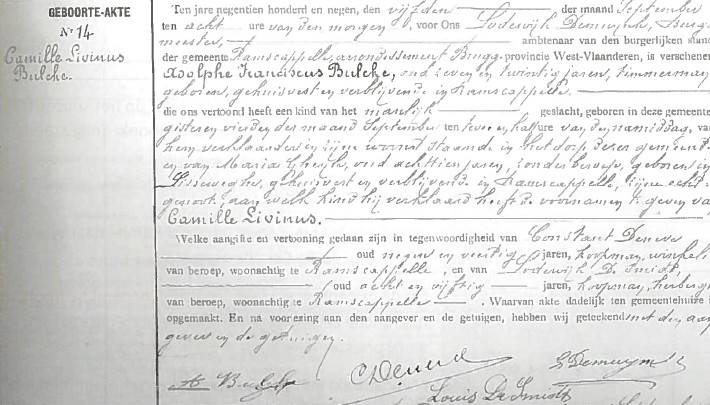 GEBOORTE-AKTE
Nr 14
Camille Livinus
Bulcke.
Ten jare negentien honderd en negen, den vijfden der maand September
ten acht ure van den morgen, voor Ons Lodewijk Demuynck, Burge
meester, ambtenaar van den burgerlijken stand
der gemeente Ramscappelle, arrondissement Brugge provincie West-Vlaanderen, is verschenen
Adolphe Franciscus Bulcke, oud zeven en twintig jaren, timmerman
geboren, gehuisvest en verblijvende in Ramscappelle.
die ons vertoond heeft een kind van het manelijk geslacht, geboren in deze gemeente
gisteren vierden der maand September ten twee en half ure van den namiddag, van
hem verklaarder in zijne woonst staande in het dorp dezer gemeente
en van Maria Gheyle, oud achttien jaren, zonder beroep, geboren in
Lisseweghe, gehuisvest en verblijvende in Ramscappelle, zijne echt-
genoote; aan welk kind hij verklaard heeft de voornamen te geven van
Camille Livinus.
Welke aangifte en vertooning gedaan zijn in tegenwoordigheid van Constant
oud negen en veertig jaren, koopman, winkeli
van beroep, woonachtig te Ramscappelle, en van Lodewijk De Smidt,
oud acht en vijftig jaren, koopman, herberg
van beroep, woonachtig te Ramscappelle. Waarvan akte dadelijk ten gemeentehuize i
opgemaakt. En na voorlezing aan den aangever en de getuigen, hebben wij geteekend met den aan
gever en de getuigen.
A Bulcke
L Demuynck
Louis De Smidt